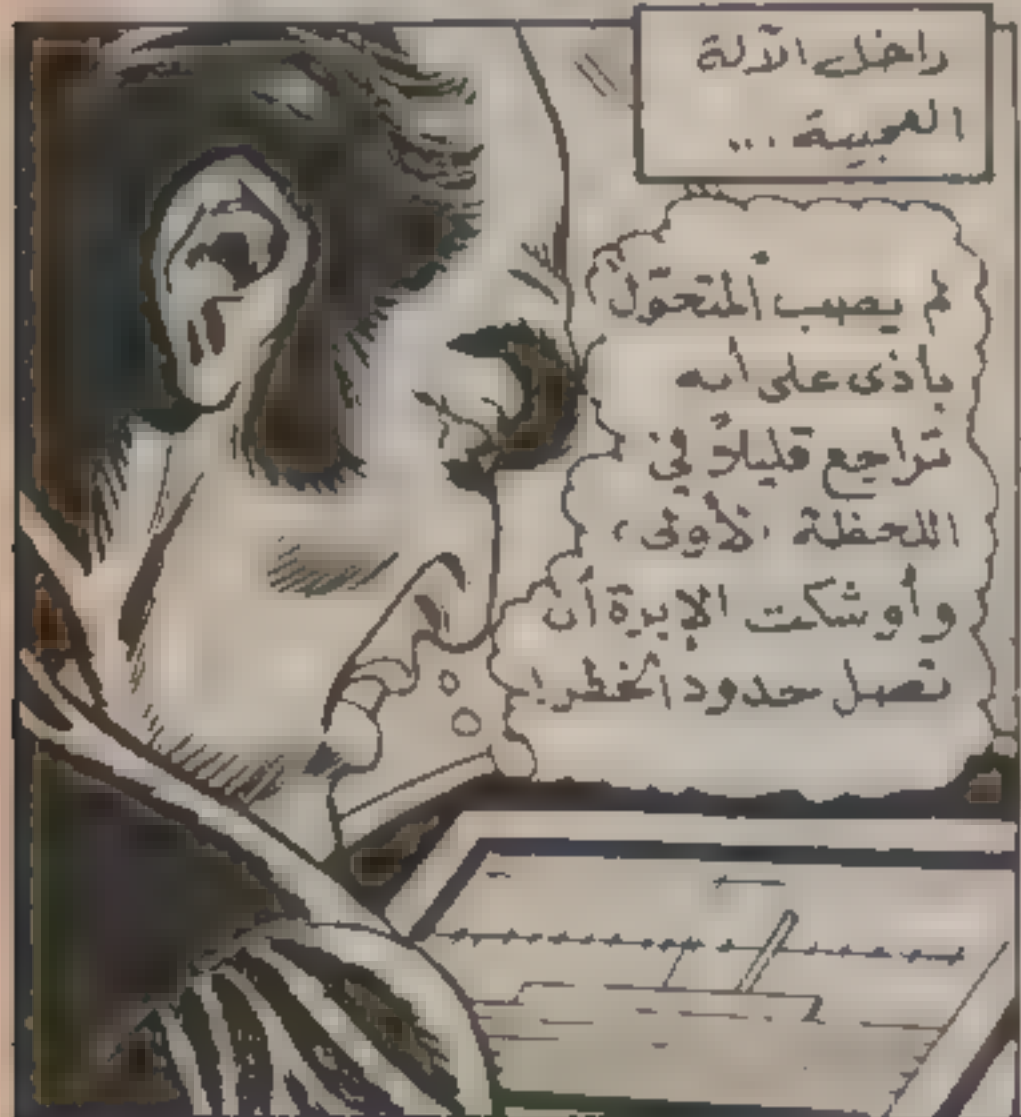 داخل الآلة
العجيبة ...
لم يصب المتحوّل
بأذى على أنه
تراجع قليلاً في
اللحظة الأولى،
وأوشكت الإبرة أن
تصل حدود الخطر!